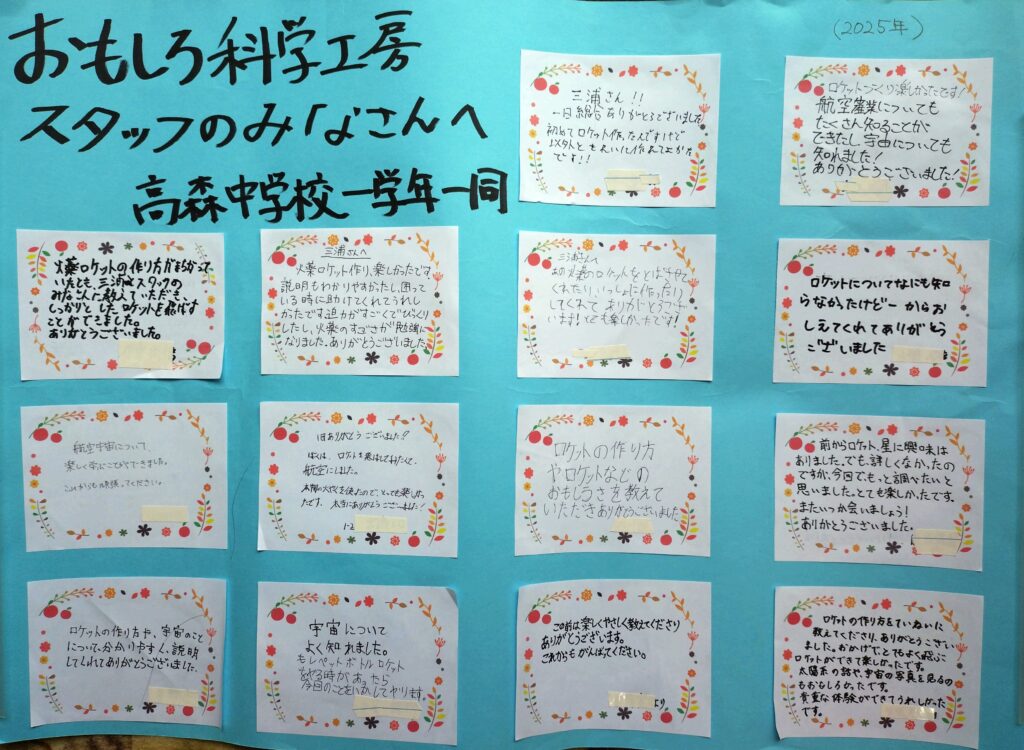 おもしろ科学工房
スタッフのみなさんへ
高森中学校一学年一同
(2025年)
三浦さん!!
一日総合ありがとうございました
初めてロケット作ったんですけど
です!!
ロケットづくり楽しかったです!
航空産業についても
たくさん知ることが
できたし宇宙についても
知れました!
ありがとうございました!
火薬ロケットの作り方がまちがって
いたとき、三浦さんスタッフの
みなさんに教えていただき
しっかりとしたロケットを飛ばす
ことができました。
ありがとうございました。
三浦さんへ
火薬ロケット作り、楽しかったです。
説明もわかりやすかったし、困って
いる時に助けてくれてうれし
かったです。迫力がすごくてびっくり
したし、火薬のすごさが勉強に
なりました。ありがとうございました。
三浦さんへ
火薬のロケットをとばせて
くれたり、いっしょに作ったり
してくれてありがとうござい
ます!とても楽しかったです!
ロケットについてなにも知
らなかったけど一からお
しえてくれてありがとう
ございました
航空宇宙について、
楽しく学ぶことができました。
これからも頑張ってください。
1日ありがとうございました!!
ぼくは、ロケットを飛ばしてみたくて、
航空にしました。
本物の火薬を使ったので、とっても楽しかっ
たです。本当にありがとうございました!
1-2
ロケットの作り方
やロケットなどの
おもしろさを教えて
いただきありがとうございました
前からロケット、星に興味は
ありました。でも、詳しくなかったの
ですが、今回で、もっと調べたいと
思いました。とても楽しかったです。
またいつか会いましょう!
ありがとうございました。
ロケットの作り方や、宇宙のこと
について、分かりやすく、説明
してくれてありがとうございました。
宇宙について
よく知れました。
もしペットボトルロケット
をやる時があったら
今回のことをいかしてやります。
この前は楽しくやさしく教えてくださり
ありがとうございます。
これからもがんばってください。
より
ロケットの作り方をていねいに
教えてくださり、ありがとうござい
ました。おかげで、とてもよく飛ぶ
ロケットができて楽しかったです。
太陽系の話や、宇宙の写真を見るの
もおもしろかったです。
貴重な体験ができてうれしかった
です。